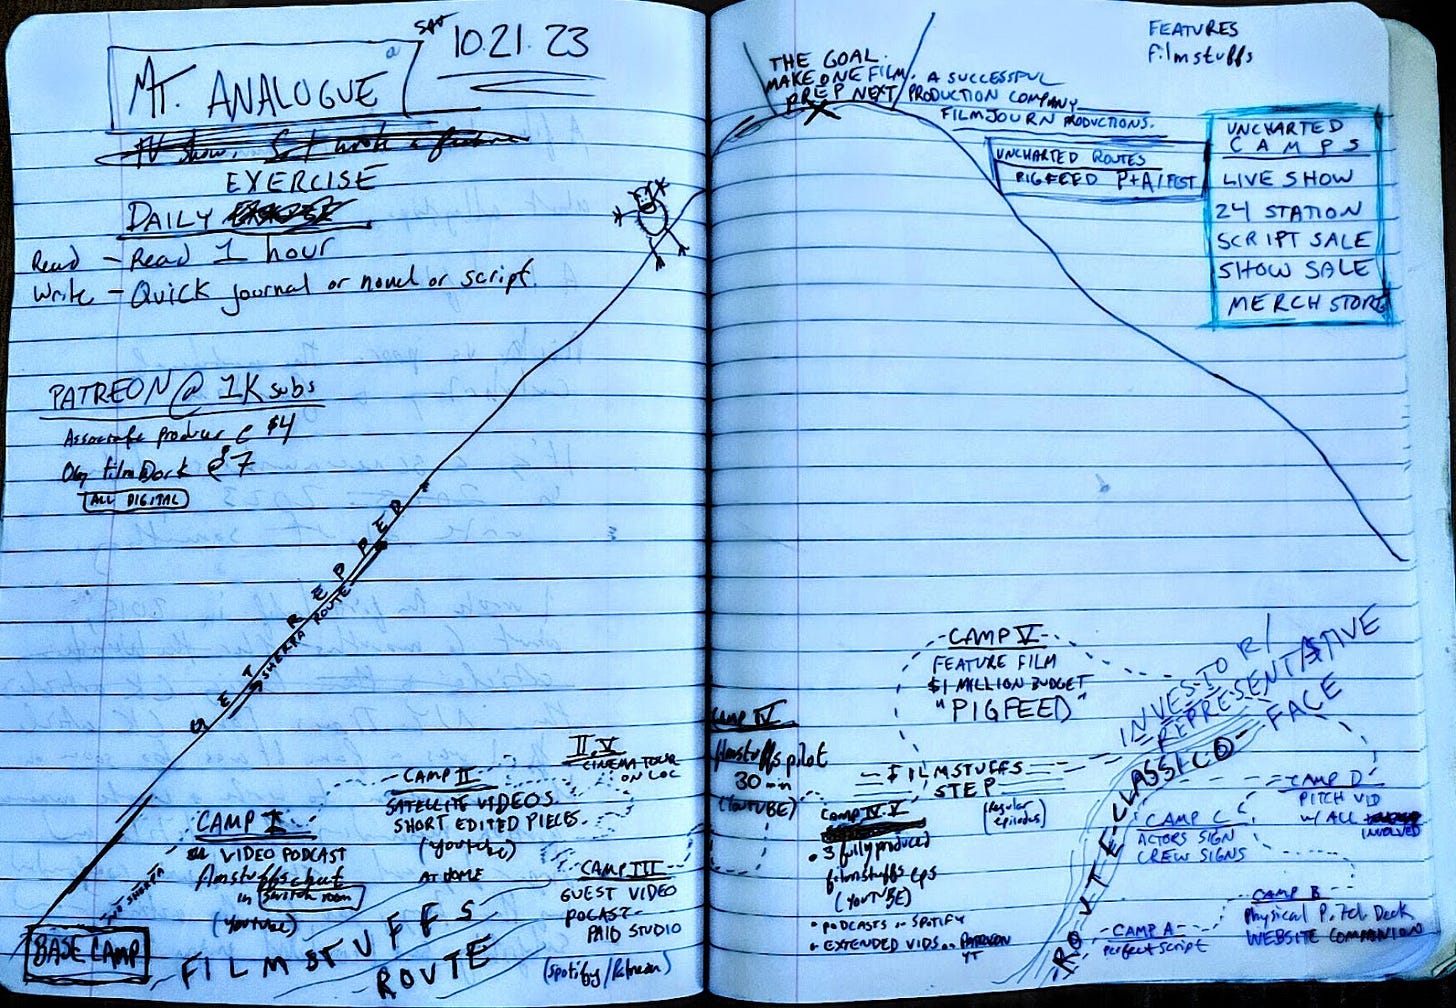 SAT
10.21.23
MT. ANALOGUE
EXERCISE
DAILY
Read - Read 1 hour
Write - Quick journal or novel or script.
PATREON @ 1K subs
Associate producer @ $4
$7
ALL DIGITAL
SET REPPER
SHERPA ROUTE
BASE CAMP
NO SHERPA
CAMP I
VIDEO PODCAST
filmstuffs chat
in switch room
(Youtube)
CAMP II
SATELLITE VIDEOS.
SHORT EDITED PIECES.
(youtube)
AT HOME
II.V
CINEMA TOUR
ON LOC
CAMP III
GUEST VIDEO
POCAST-
PAID STUDIO
(Spotify/Patreon)
FILMSTUFFS
ROUTE
FEATURES
filmstuffs
THE GOAL.
MAKE ONE FILM.
PREP NEXT
A SUCCESSFUL
PRODUCTION COMPANY
FILMJOURN PRODUCTIONS.
UNCHARTED ROUTES
PIGFEED P+A/FEST
UNCHARTED
CAMPS
LIVE SHOW
24 STATION
SCRIPT SALE
SHOW SALE
MERCH STORE
CAMP IV
filmstuffs pilot
30 min
(YOUTUBE)
CAMP V
FEATURE FILM
$1 MILLION BUDGET
"PIGFEED"
FILMSTUFFS
STEP
(Regular
episodes)
CAMP IV.V
• 3 fully produced
filmstuffs eps
(YOUTUBE)
• PODCASTS on SPOTIFY
+ EXTENDED VIDS on PATREON
YT
INVESTOR/
REPRESENTATIVE
FACE
ROUTE CLASSICO
CAMP A
perfect script
CAMP B
Physical Pitch Deck
WEBSITE COMPANION
CAMP C
ACTORS SIGN
CREW SIGNS
CAMP D
PITCH VID
W/ ALL
INVOLVED